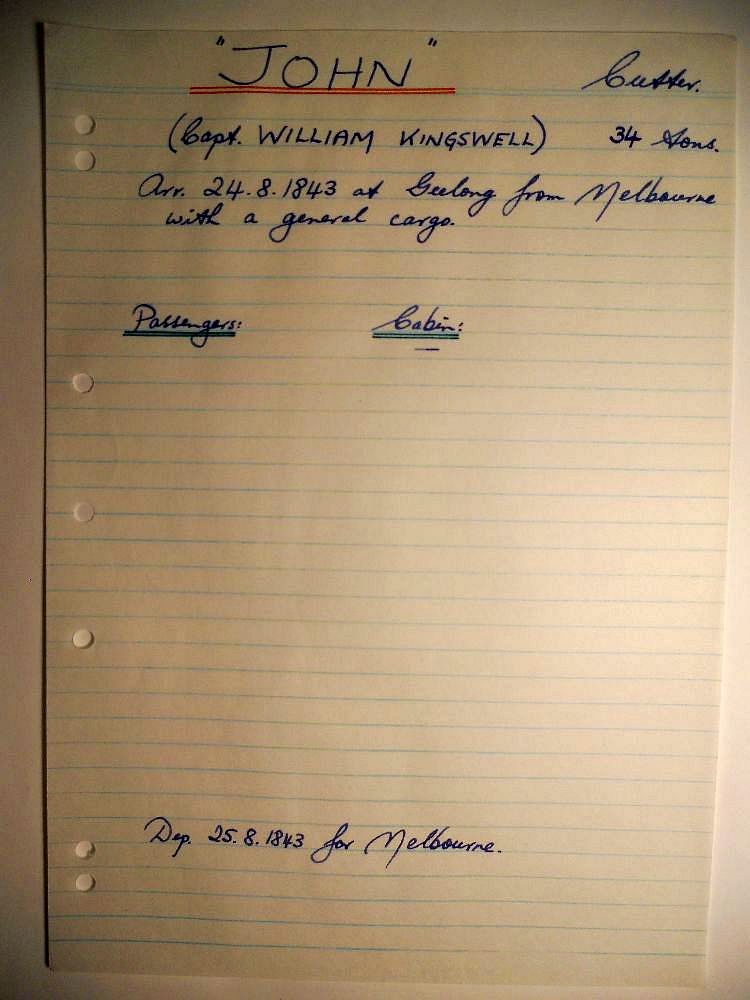 "JOHN" Cutter.
(Capt. WILLIAM KINGSWELL) 34 tons.
Arr. 24.8.1843 at Geelong from Melbourne
with a general cargo.
Passengers: Cabin:
—
Dep. 25.8.1843 for Melbourne.